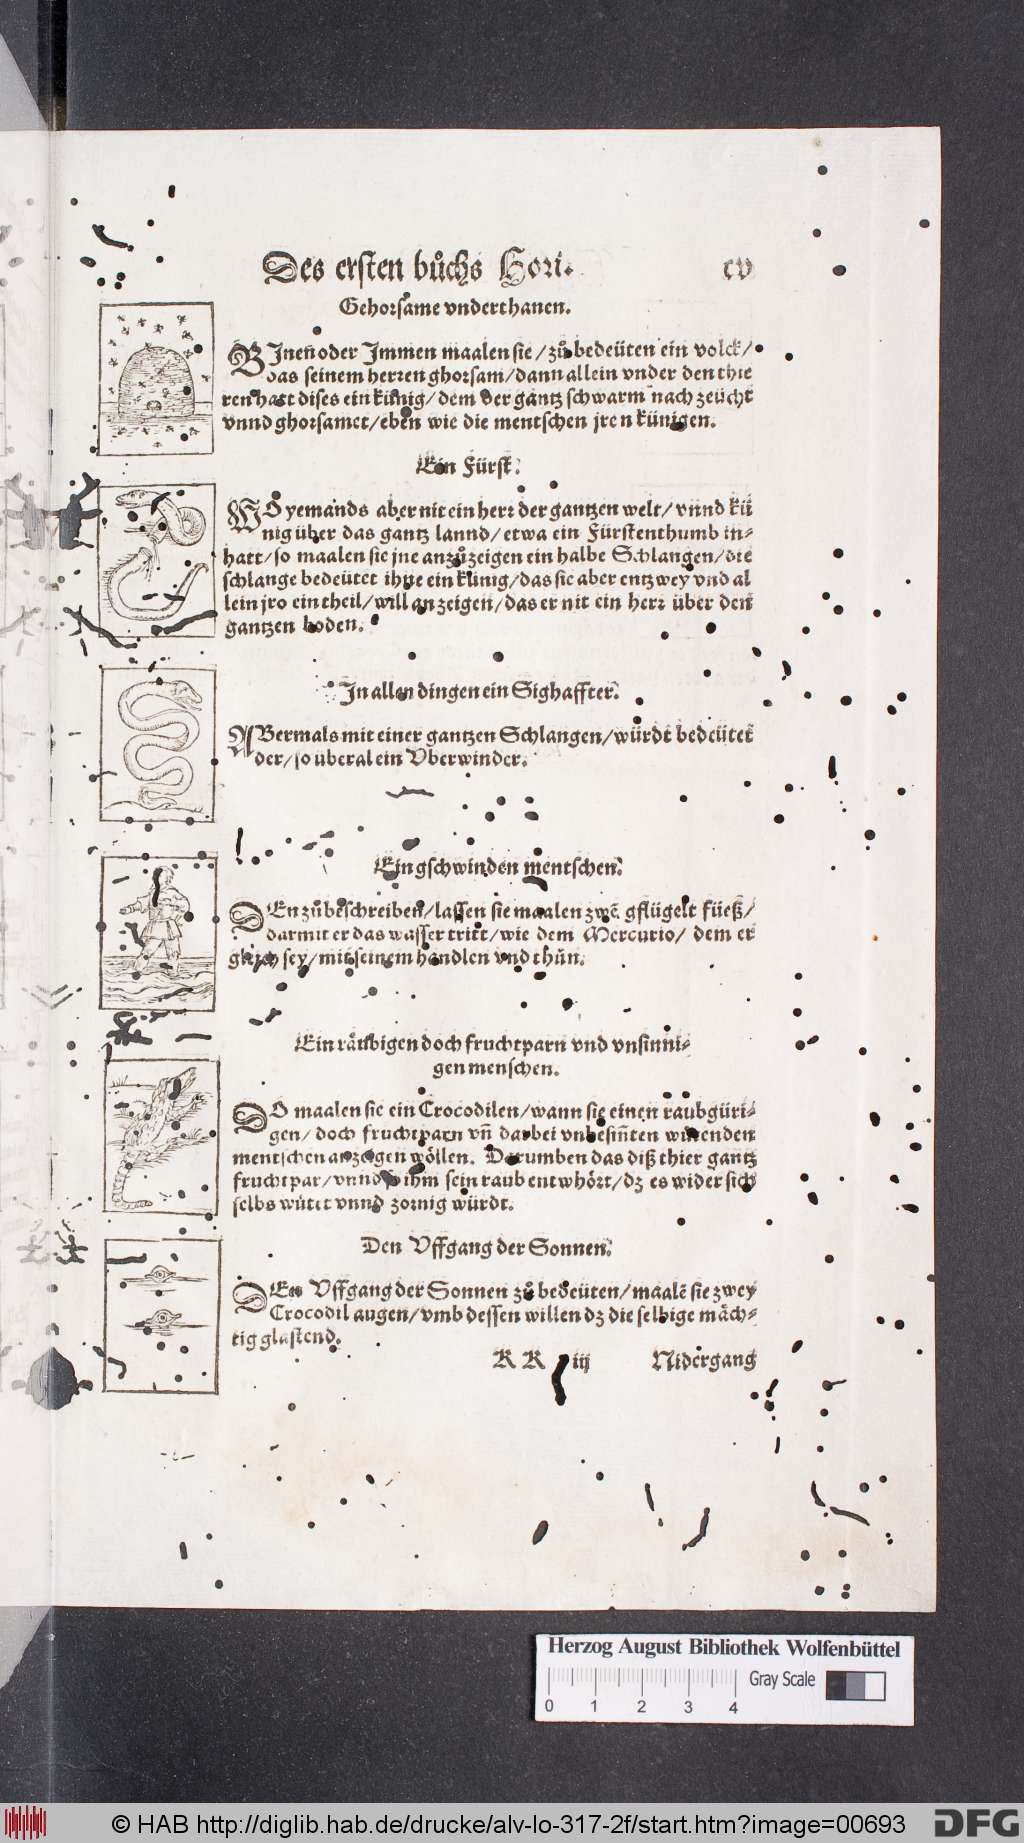 Des ersten bůchs Hori.
cv
Gehorsame vnderthanen.
BJnen oder Jmmen maalen sie / zů bedeüten ein volck /
das seinem herren ghorsam / dann allein vnder den thie
ren hatt dises ein künig / dem der gantz schwarm nach zeücht
vnnd ghorsamet / eben wie die mentschen jren künigen.
Ein Fürst.
WO yemands aber nit ein herr der gantzen welt / vnnd kü
nig über das gantz lannd / etwa ein Fürstenthumb in-
hatt / so maalen sie jne anzůzeigen ein halbe Schlangen / die
schlange bedeütet ihne ein künig / das sie aber entzwey vnd al
lein jro ein theil / will anzeigen / das er nit ein herr über den
gantzen boden.
Jn allen dingen ein Sighaffter.
ABermals mit einer gantzen Schlangen / würdt bedeütet
der / so überal ein Vberwinder.
Ein gschwinden mentschen.
DEn zůbeschreiben / lassen sie maalen zwē gflügelt füeß /
darmit er das wasser tritt / wie dem Mercurio / dem er
gleich sey / mit seinem handlen vnd thůn.
Ein räubigen doch fruchtparn vnd vnsinni-
gen menschen.
DO maalen sie ein Crocodilen / wann sie einen raubgüri-
gen / doch fruchtparn vñ darbei vnbesiñten wütenden
mentschen anzeigen wöllen. Darumben das diß thier gantz
fruchtpar / vnnd so ihm sein raub entwhört / dz es wider sich
selbs wütet vnnd zornig würdt.
Den Vffgang der Sonnen.
DEn Vffgang der Sonnen zů bedeüten / maalē sie zwey
Crocodil augen / vmb dessen willen dz die selbige mäch-
tig glastend.
KK iij
Nidergang
Herzog August Bibliothek Wolfenbüttel
Gray Scale
0 1 2 3 4
© HAB http://diglib.hab.de/drucke/alv-lo-317-2f/start.htm?image=00693
DFG